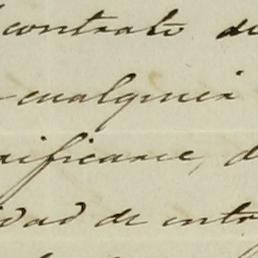 contrato de
cualquier
rificarse, d
idad de entr